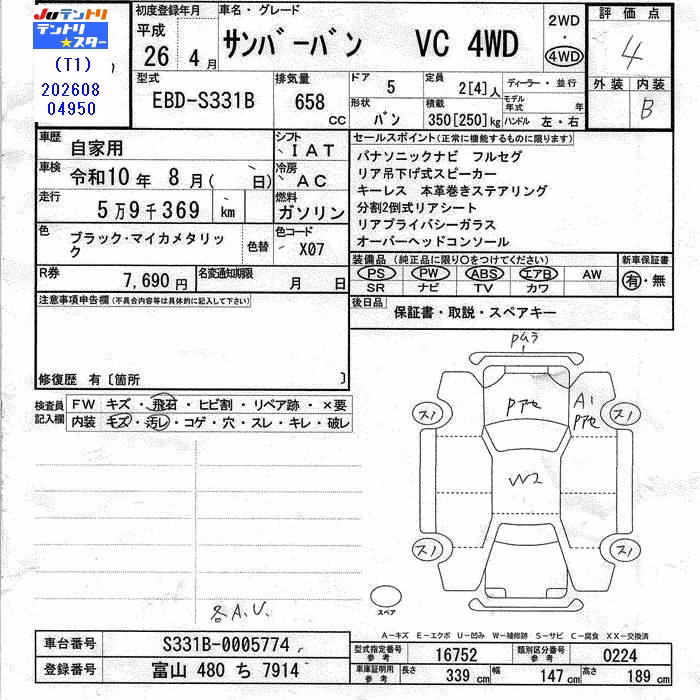 Juテントリ
テントリ
★スター
(T1)
202608
04950
初度登録年月 平成 26年 4月
車名・グレード サンバーバン VC 4WD
2WD・4WD
評価点 4
外装 内装 B
型式 EBD-S331B
排気量 658 CC
ドア 5
定員 2[4]人
ディーラー・並行
形状 バン
積載 350[250]kg
モデル年式 年
ハンドル 左・右
車歴 自家用
シフト IAT
車検 令和10年 8月( 日)
冷房 AC
走行 5万9千369 km
燃料 ガソリン
色 ブラック・マイカメタリック
色替
色コード X07
R券 7,690円
名変通知期限 月 日
セールスポイント(正常に機能するものに限ります)
パナソニックナビ フルセグ
リア吊下げ式スピーカー
キーレス 本革巻きステアリング
分割2倒式リアシート
リアプライバシーガラス
オーバーヘッドコンソール
装備品(純正品に限り○をつけてください)
新車保証書 有・無
PS PW ABS エアB AW
SR ナビ TV カワ
後日品 保証書・取説・スペアキー
注意事項申告欄(不具合内容等は具体的に記入して下さい)
修復歴 有〔箇所 〕
検査員記入欄
FW キズ・飛石・ヒビ割・リペア跡・×要
内装 キズ・汚レ・コゲ・穴・スレ・キレ・破レ
Pムラ
Pアセ
A1
Pアセ
W2
スノ スノ
スノ スノ
スペア
各A.U.
A-キズ E-エクボ U-凹み W-補修跡 S-サビ C-腐食 XX-交換済
車台番号 S331B-0005774
型式指定番号 参考 16752
類別区分番号 参考 0224
登録番号 富山 480 ち 7914
車庫証明用 参考 長さ 339cm 幅 147cm 高さ 189cm